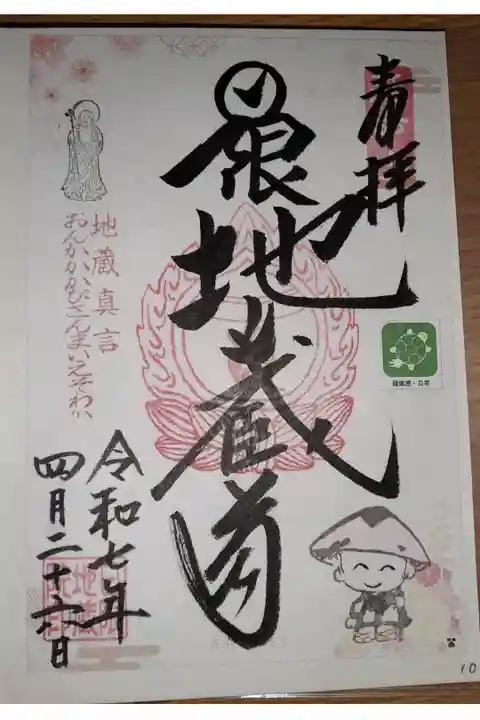 奉拝
日限地蔵尊
健康運・長寿
地蔵真言
おんかかかびさんまいえそわか
令和七年
四月二十六日
10